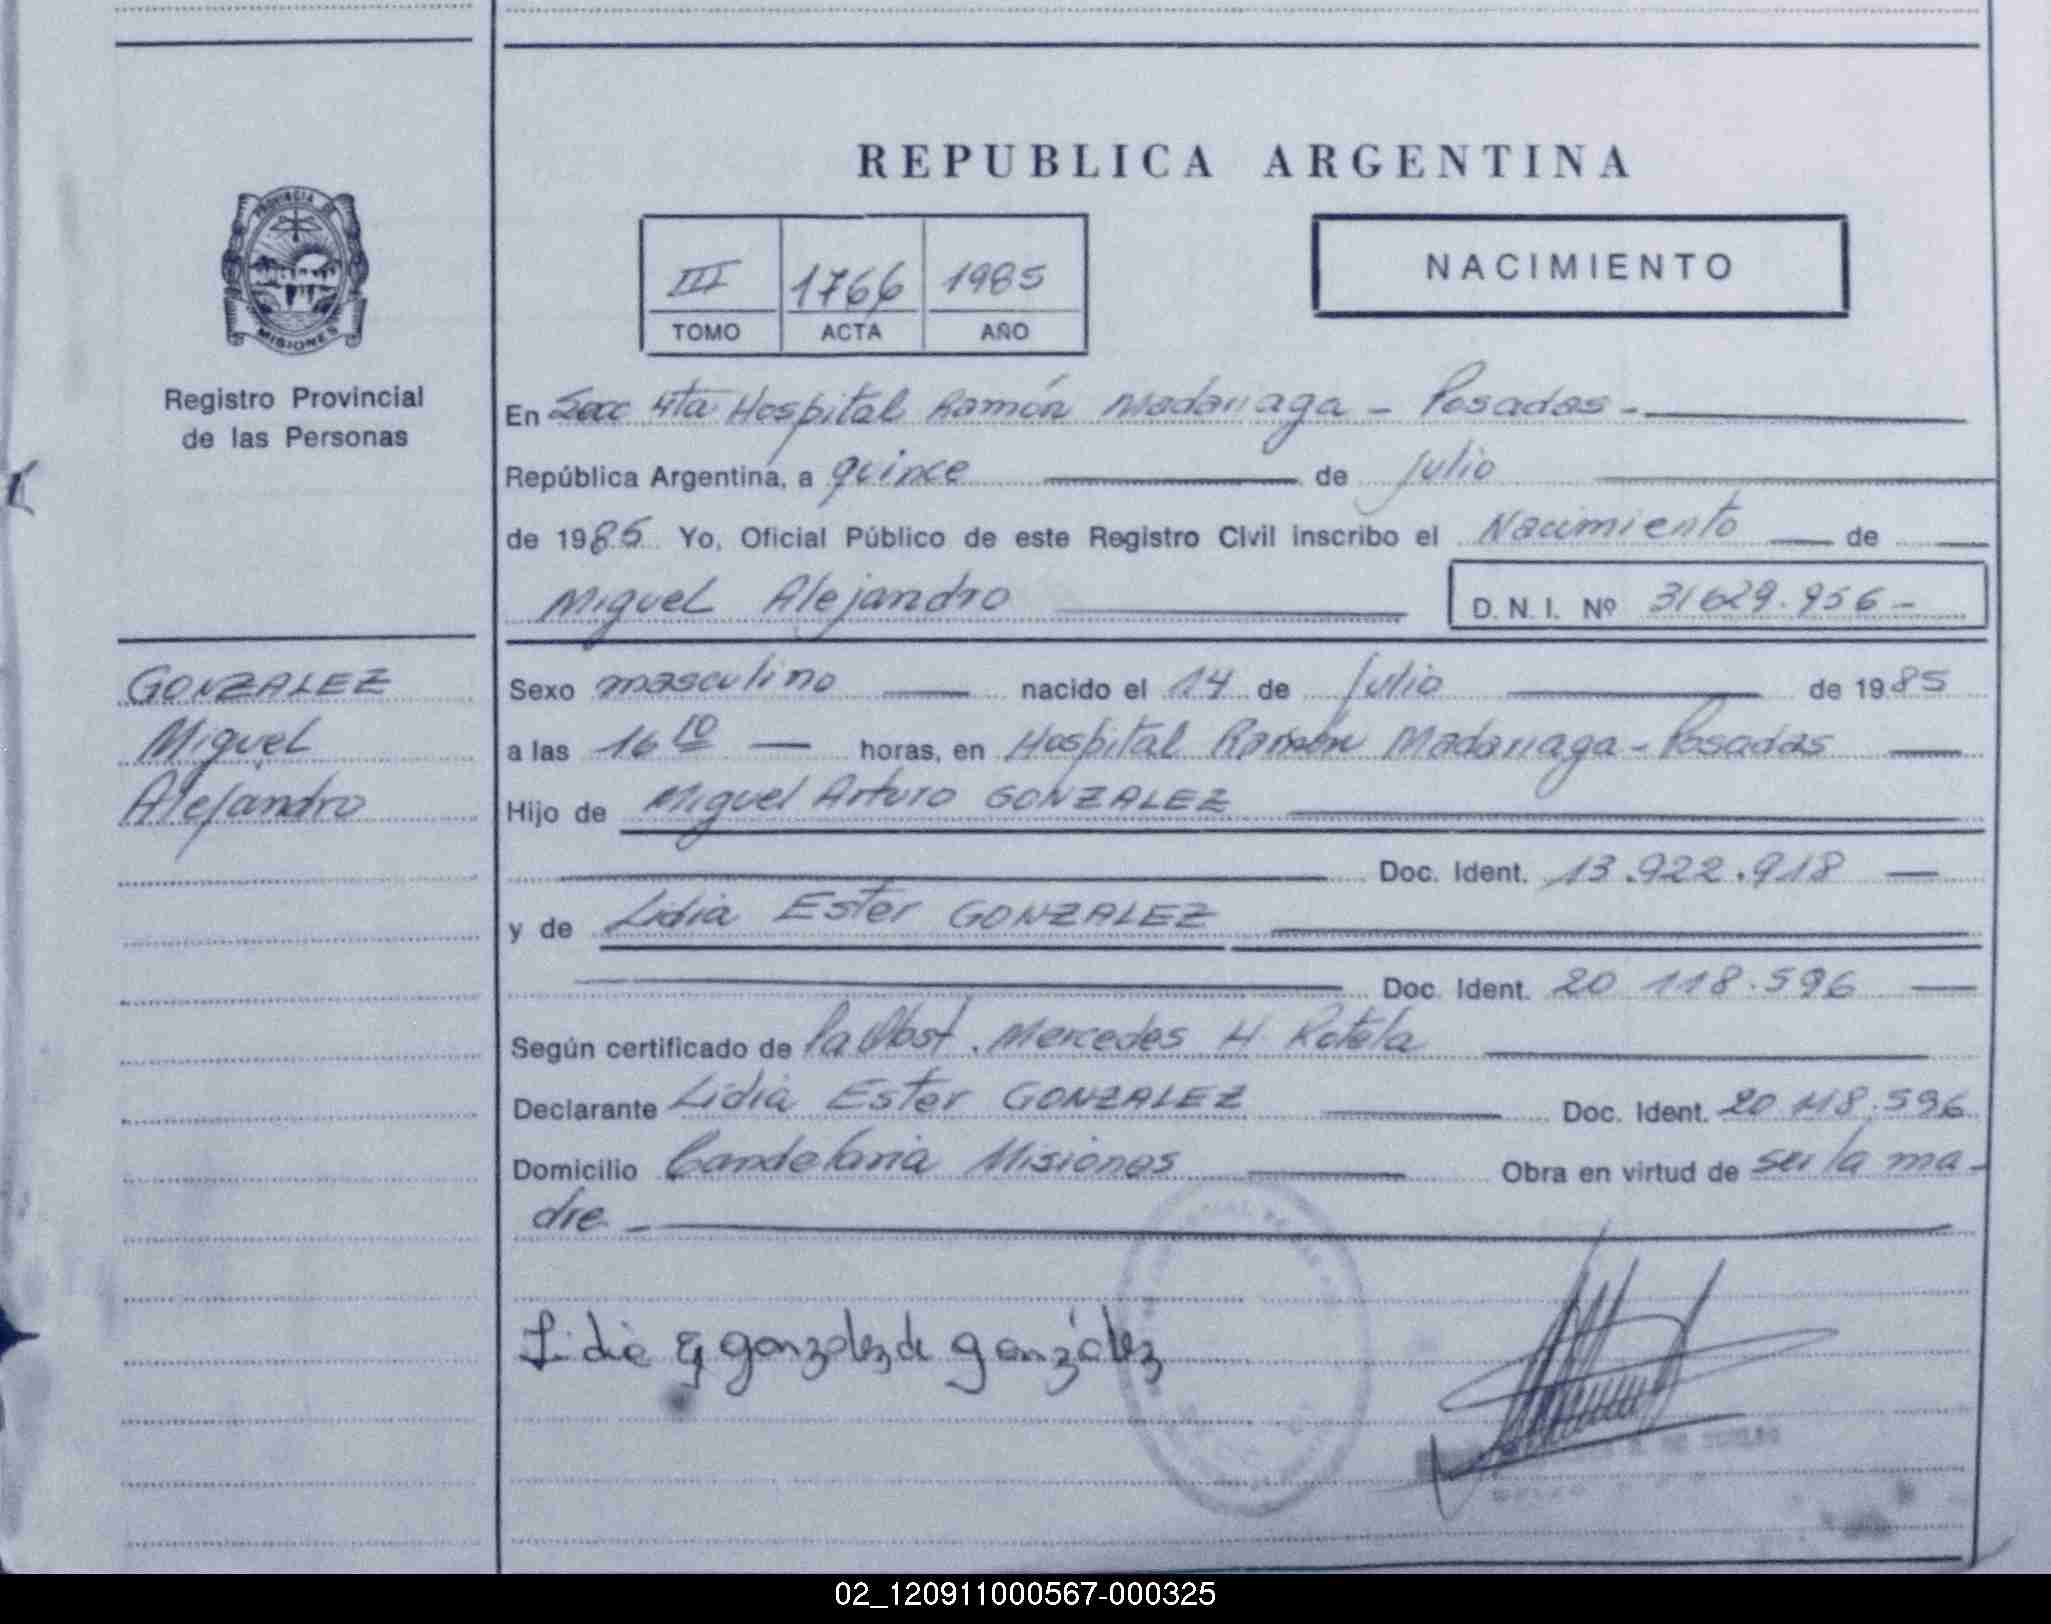 REPUBLICA ARGENTINA
PROVINCIA DE
MISIONES
Registro Provincial
de las Personas
III 1766 1985
TOMO ACTA AÑO
NACIMIENTO
En Secc 4ta Hospital Ramón Madariaga - Posadas -
República Argentina, a quince de julio
de 1985 Yo, Oficial Público de este Registro Civil inscribo el Nacimiento de
Miguel Alejandro D. N. I. Nº 31629.956 -
GONZALEZ
Miguel
Alejandro
Sexo masculino nacido el 14 de julio de 1985
a las 16 10 horas, en Hospital Ramón Madariaga - Posadas
Hijo de Miguel Arturo GONZALEZ
Doc. Ident. 13.922.918
y de Lidia Ester GONZALEZ
Doc. Ident. 20 118.596
Según certificado de Mercedes H. Rotela
Declarante Lidia Ester GONZALEZ Doc. Ident. 20 118.596
Domicilio Candelaria Misiones Obra en virtud de ser la ma-
dre -
Lidia E gonzalez de gonzález
02_120911000567-000325